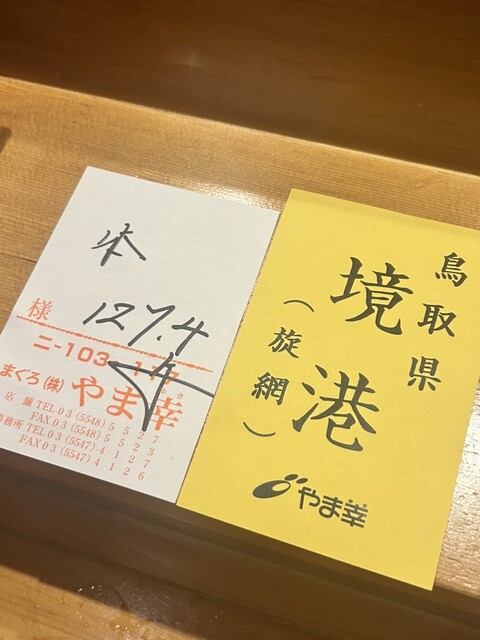 本
様
127.4
ニ-103
まぐろ(株)やま幸
店舗 TEL 03(5548)5527
FAX 03(5548)5523
事務所 TEL 03(5547)4127
FAX 03(5547)4126
鳥取県
境港
(旋網)
やま幸